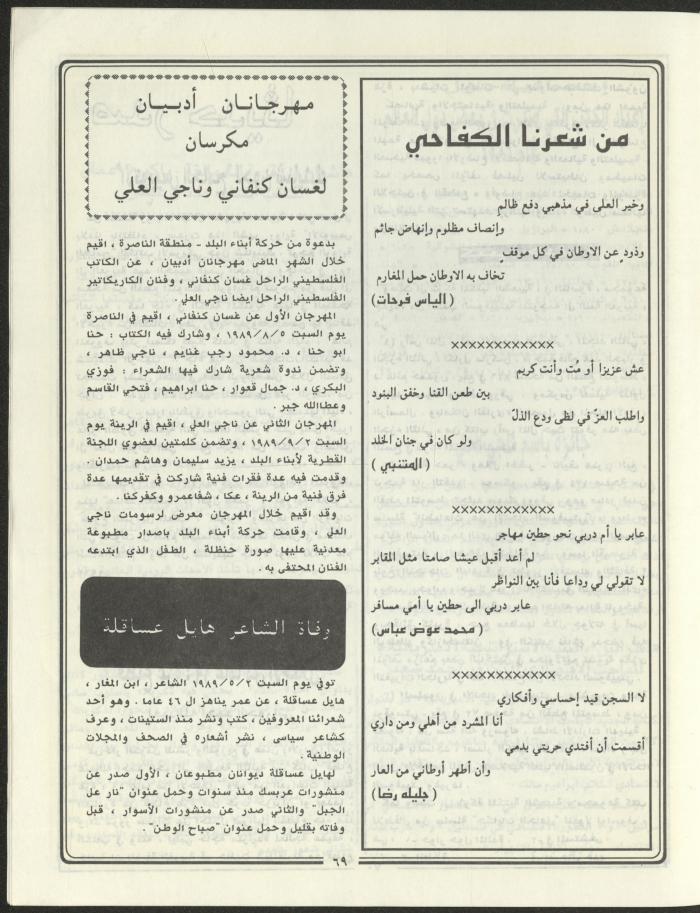 من شعرنا الكفاحي
وخير العلى في مذهبي دفع ظالم
وإنصاف مظلوم وإنهاض جاثم
وذود عن الاوطان في كل موقف
تخاف به الاوطان حمل المغارم
( الياس فرحات )
××××××××××××
عش عزيزا أو مت وأنت كريم
بين طعن القنا وخفق البنود
واطلب العزّ في لظى ودع الذلّ
ولو كان في جنان الخلد
( المتنبي )
××××××××××××
عابر يا أم دربي نحو حطين مهاجر
لم أعد أقبل عيشا صامتا مثل المقابر
لا تقولي لي وداعا فأنا بين النواظر
عابر دربى الى حطين يا أمي مسافر
( محمد عوض عباس )
××××××××××××
لا السجن قيد إحساسي وأفكاري
أنا المشرد من أهلي ومن داري
أقسمت أن أفتدي حريتي بدمي
وأن أطهر أوطاني من العار
( جليله رضا )
مهرجانان أدبيان
مكرسان
لغسان كنفاني وناجي العلي
بدعوة من حركة أبناء البلد - منطقة الناصرة ، اقيم
خلال الشهر الماضى مهرجانان أدبيان ، عن الكاتب
الفلسطيني الراحل غسان كنفاني ، وفنان الكاريكاتير
الفلسطيني الراحل ايضا ناجي العلي .
المهرجان الأول عن غسان كنفاني ، اقيم في الناصرة
يوم السبت ١٩٨٩/٨/٥ ، وشارك فيه الكتاب : حنا
ابو حنا ، د. محمود رجب غنايم ، ناجي ظاهر ،
وتضمن ندوة شعرية شارك فيها الشعراء : فوزي
البكري ، د. جمال قعوار ، حنا ابراهيم ، فتحي القاسم
وعطاالله جبر .
المهرجان الثاني عن ناجي العلي ، اقيم في الرينة يوم
السبت ١٩٨٩/٩/٢ ، وتضمن كلمتين لعضوي اللجنة
القطرية لأبناء البلد ، يزيد سليمان وهاشم حمدان .
وقدمت فيه عدة فقرات فنية شاركت في تقديمها عدة
فرق فنية من الرينة ، عكا ، شفاعمرو وكفركنا .
وقد اقيم خلال المهرجان معرض لرسومات ناجي
العلي ، وقامت حركة أبناء البلد باصدار مطبوعة
معدنية عليها صورة حنظلة ، الطفل الذي ابتدعه
الفنان المحتفى به .
وفاة الشاعر هايل عساقلة
توفي يوم السبت ١٩٨٩/٥/٢ الشاعر ، ابن المغار ،
هايل عساقلة ، عن عمر يناهز ال ٤٦ عاما . وهو أحد
شعرائنا المعروفين ، كتب ونشر منذ الستينات ، وعرف
كشاعر سياسى ، نشر أشعاره في الصحف والمجلات
الوطنية .
لهايل عساقلة ديوانان مطبوعان ، الأول صدر عن
منشورات عربسك منذ سنوات وحمل عنوان "نار عل
الجبل" والثاني صدر عن منشورات الأسوار ، قبل
وفاته بقليل وحمل عنوان "صباح الوطن" .
٦٩